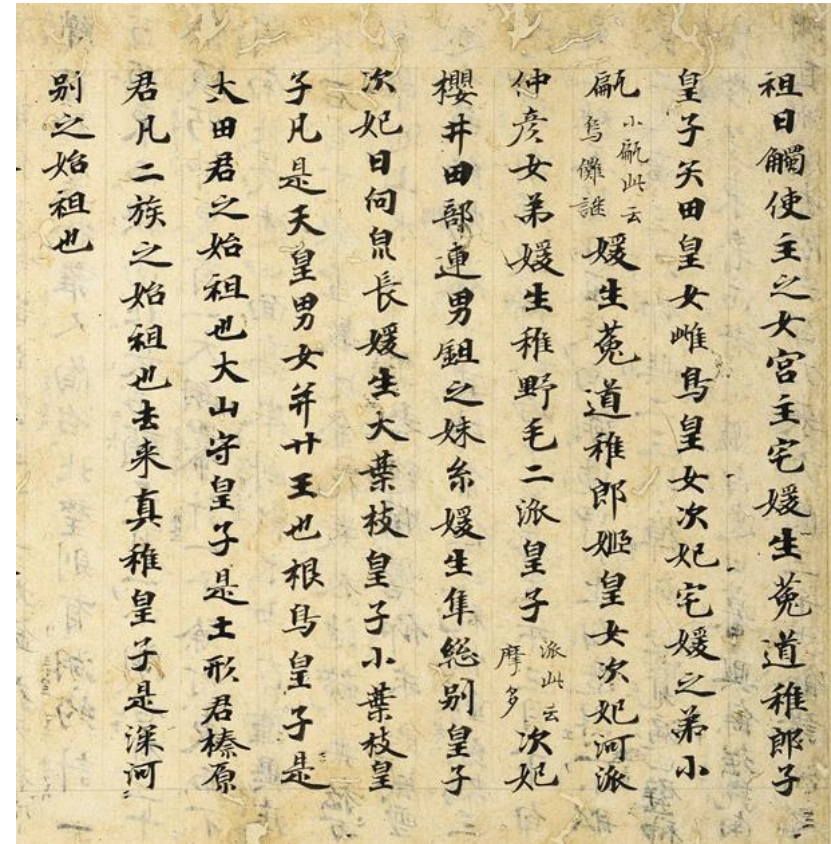 祖日觸使主之女宮主宅媛生菟道稚郎子
皇子矢田皇女雌鳥皇女次妃宅媛之弟小
甂小甂此云烏儺謎媛生菟道稚郎姫皇女次妃河派
仲彦女弟媛生稚野毛二派皇子派此云摩多次妃
櫻井田部連男鉏之妹糸媛生隼総別皇子
次妃日向泉長媛生大葉枝皇子小葉枝皇
子凡是天皇男女并廿王也根鳥皇子是
大田君之始祖也大山守皇子是土形君榛原
君凡二族之始祖也去来真稚皇子是深河
別之始祖也